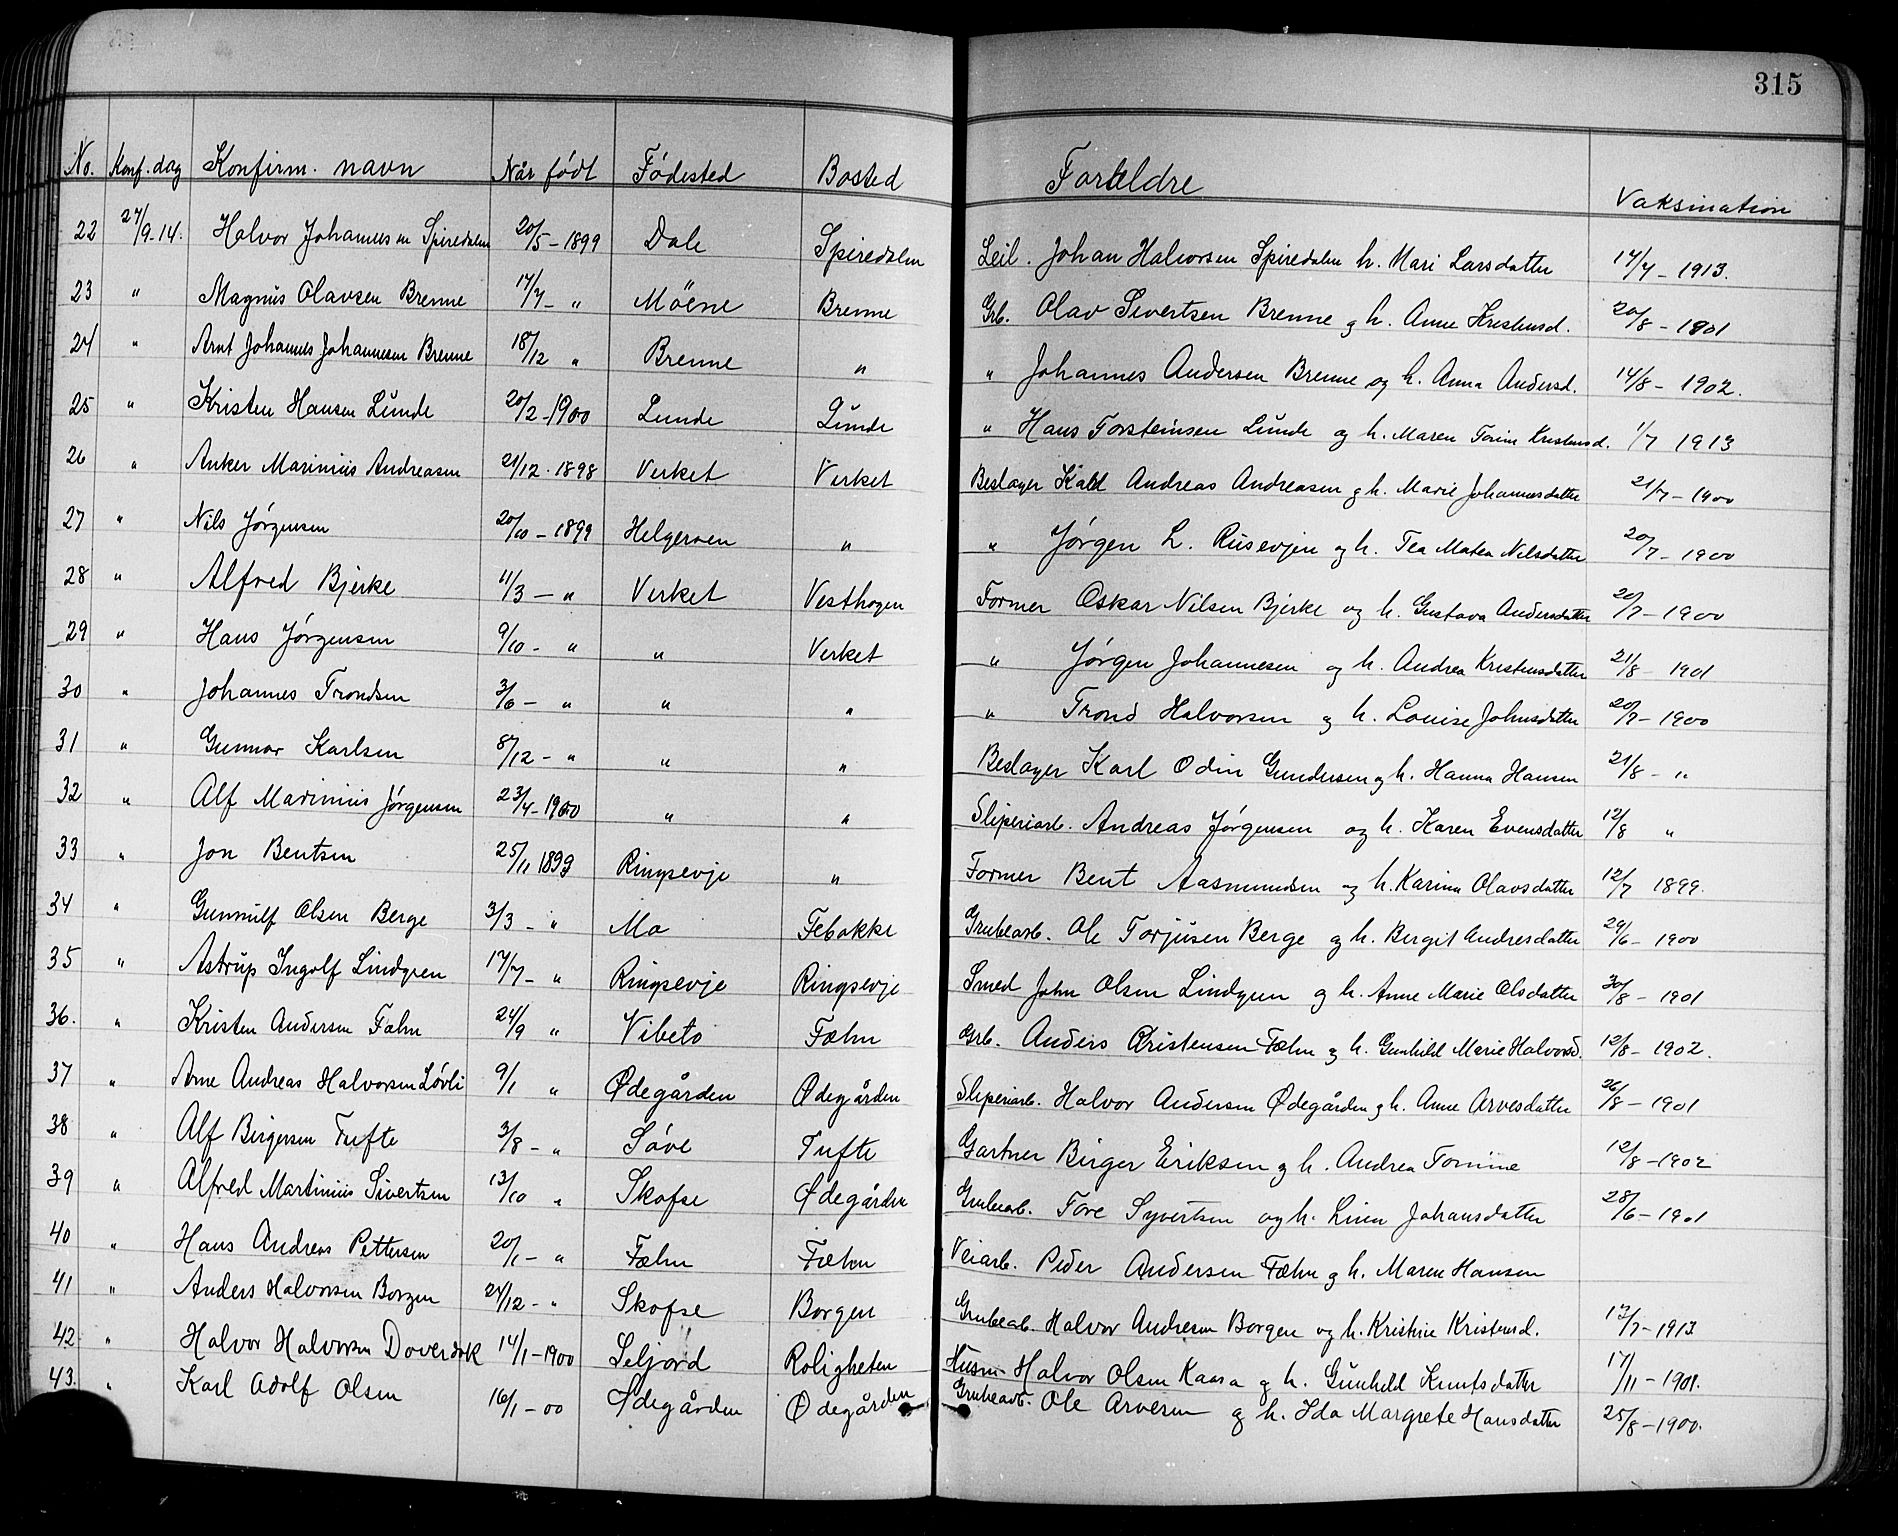 315
No. Konf. dag Konfirm. navn Når født Fødested Bosted Foreldre Vaksination
22 27/9-14. Halvor Johannesen Spiredalen 20/5-1899 Dale Spiredalen Leil. Johan Halvorsen Spiredalen h. Mari Larsdatter 14/7-1913.
23 " Magnus Olavsen Brenne 17/7- " Möene Brenne Grb. Olav Sivertsen Brenne g h. Anne Kristensd. 20/8-1901
24 " Arnt Johannes Johannesen Brenne 18/12 " Brenne " " Johannes Andersen Brenne og h. Anna Andersd. 14/8-1902.
25 " Kristen Hansen Lunde 20/2-1900 Lunde Lunde " Hans Torsteinsen Lunde og h. Maren Tomine Kristensd. 1/7 1913
26 " Anker Marinius Andreasen 21/12-1898 Verket Verket Beslager Karl Andreas Andreasen g h. Marie Johannesdatter 21/7-1900
27 " Nils Jørgensen 20/10-1899 Helgeroen " " Jørgen L. Rusevjen og h. Tea Matea Nilsdatter 20/7-1900
28 " Alfred Bjerke 11/3- " Verket Vesthagen Former Oskar Nilsen Bjerke og h. Gustava Andersdatter 20/7-1900
29 " Hans Jørgensen 9/10- " " Verket " Jørgen Johannesen og h. Andrea Kristensdatter 21/8-1901
30 " Johannes Trondsen 3/6- " " " " Trond Halvorsen og h. Louise Johnsdatter 20/7-1900
31 " Gunnar Karlsen 8/12- " " " Beslager Karl Odin Gundersen g h. Hanna Hansen 21/8- "
32 " Alf Marinius Jørgensen 23/4-1900 " " Sliperiarb. Andreas Jørgensen og h. Karen Evensdatter 12/8 "
33 " Jon Bentsen 25/11 1899 Ringsevje " Former Bent Aasmundsen og h. Karine Olavsdatter 12/7 1899.
34 " Gunnulf Olsen Berge 3/3- " Mo Febakke Grubearb. Ole Torjusen Berge og h. Bergit Andresdatter 29/6-1900
35 " Astrup Ingolf Lindgren 17/7- " Ringsevje Ringsevje Smed John Olsen Lindgren g h. Anne Marie Olsdatter 30/8-1901
36. " Kristen Andersen Fæhn 24/9 " Vibeto Fæhn Grb. Anders Kristensen Fæhn g h. Gunhild Marie Halvorsd. 12/8-1902.
37 " Arne Andreas Halvorsen Løvli 9/1 " Ødegården Ødegården Sliperiarb. Halvor Andersen Ødegården g h. Anne Arvesdatter 26/8-1901
38 " Alf Birgersen Tufte 3/8- " Söve Tufte Gartner Birger Eriksen g h. Andrea Tomine 12/8-1902
39 " Alfred Martinius Sivertsen 13/10 " Skofse Ødegården Grubearb. Tore Syvertsen og h. Linea Johansdatter 28/6-1901
40 " Hans Andreas Pettersen 20/1- " Fæhn Fæhn Veiarb. Peder Andersen Fæhn g h. Maren Hansen
41 " Anders Halvorsen Borgen 24/12- " Skofse Borgen Grubearb. Halvor Andresen Borgen og h. Kristine Kristensd. 12/7-1913
42 " Halvor Halvorsen Doverdok 14/1-1900 Seljord Roligheten Husm. Halvor Olsen Kaasa g h. Gunhild Knutsdatter 17/11-1901.
43. " Karl Adolf Olsen 16/1-00 Ødegården Ødegården Grubearb. Ole Arvesen g h. Ida Margrete Hansdatter 25/8-1900.